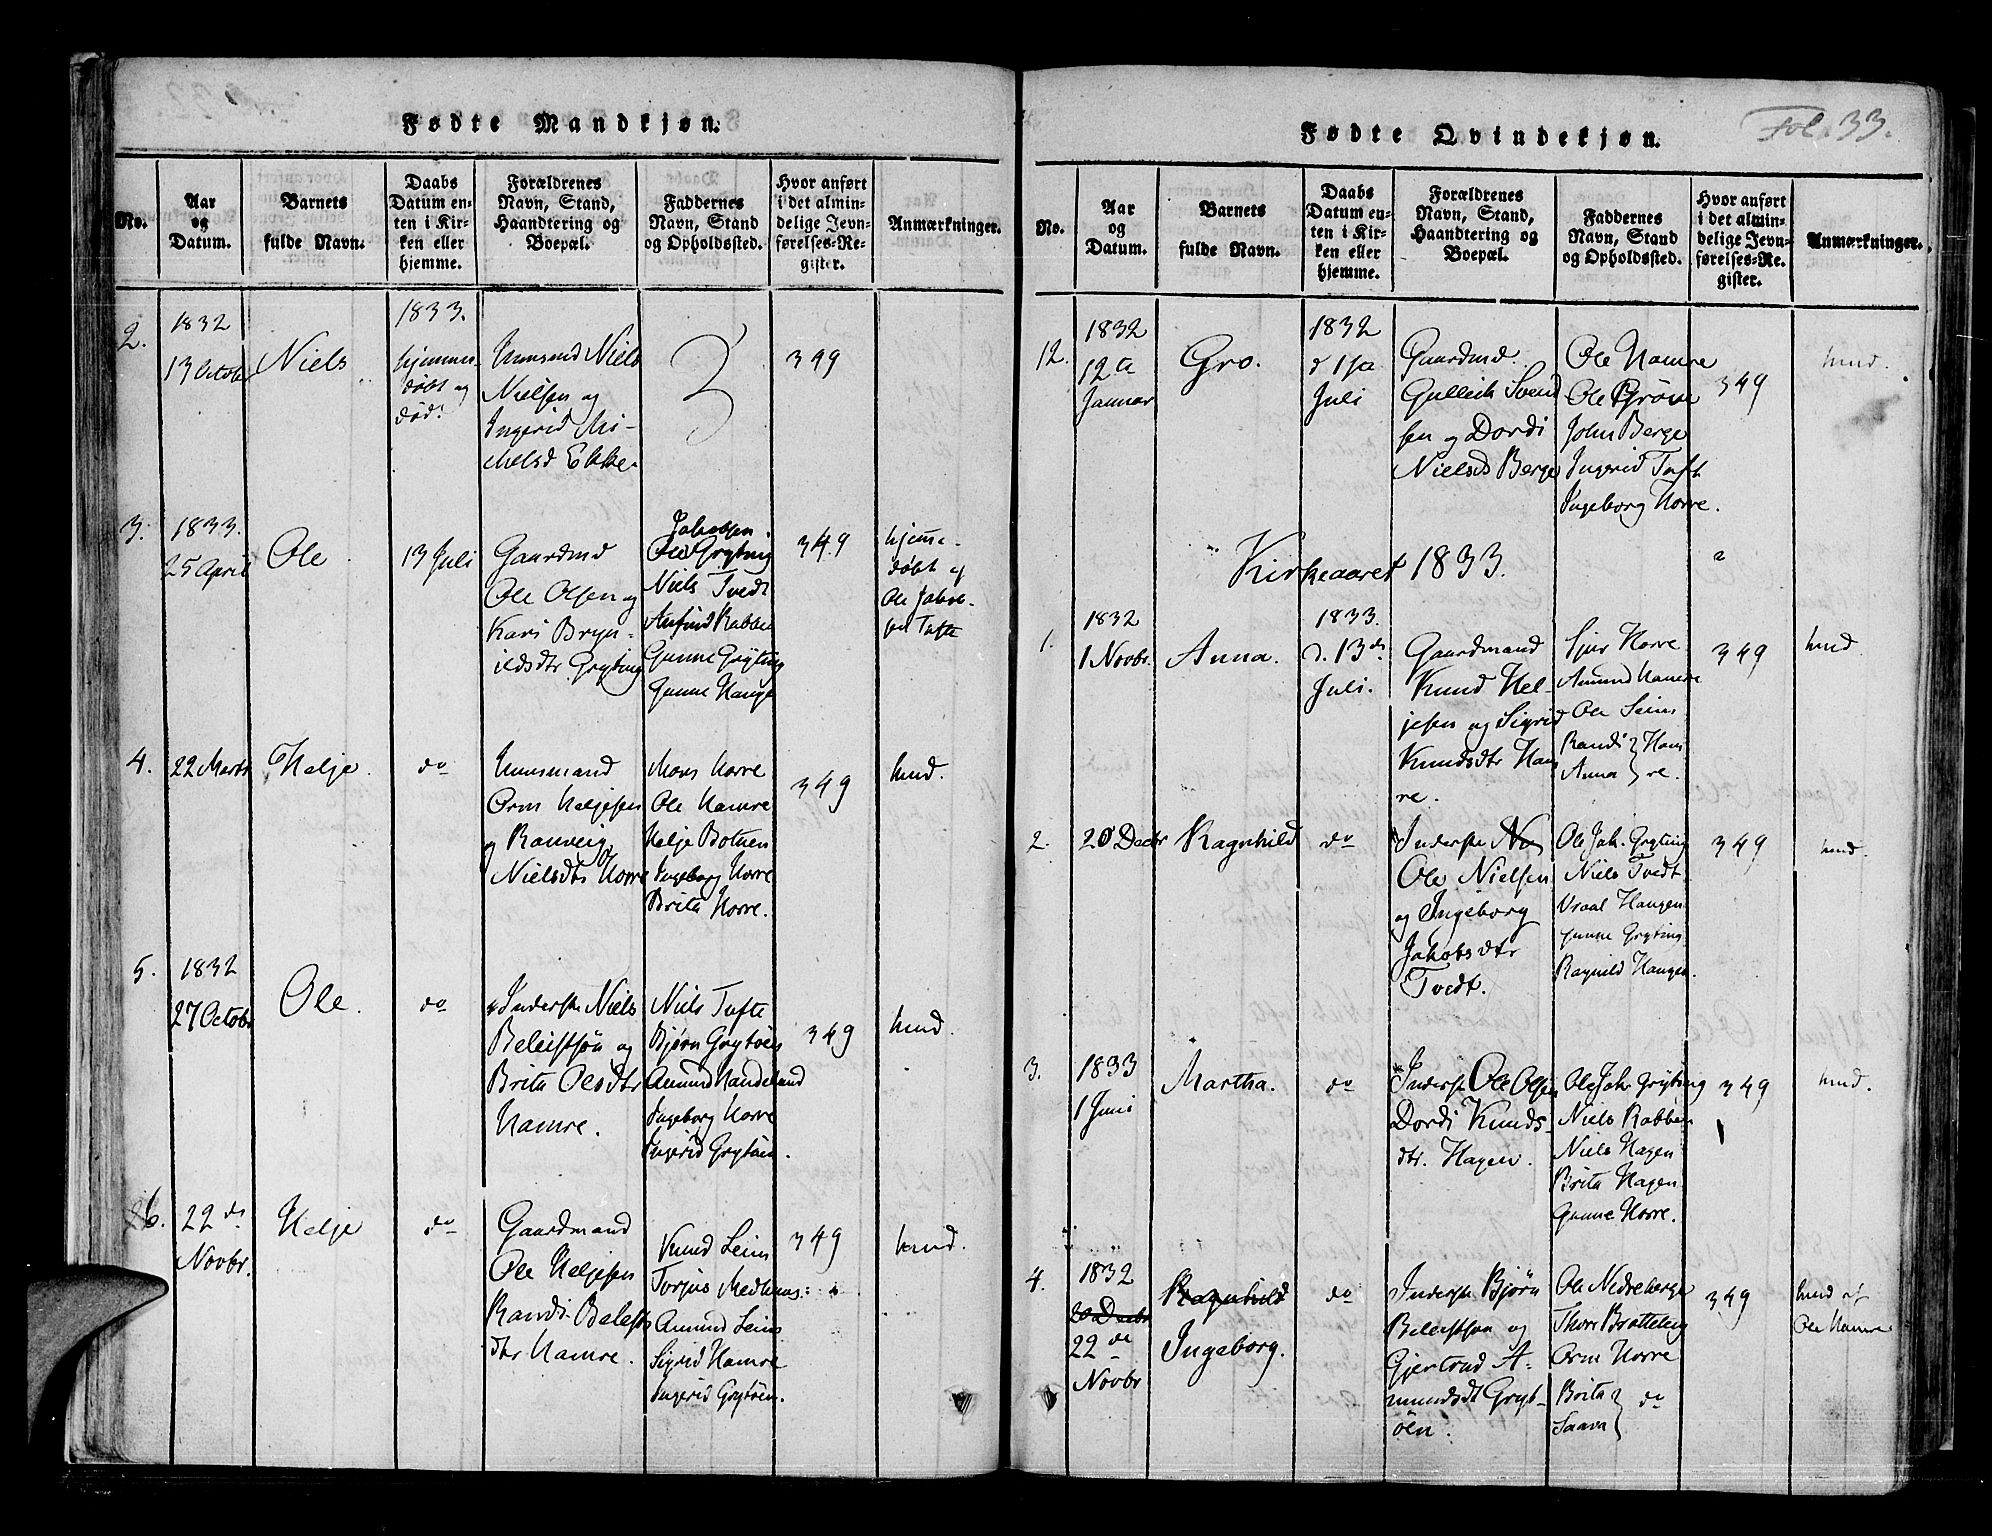 Fødte Mandkjøn.
No.
Aar
og
Datum.
Barnets
fulde Navn.
Daabs
Datum en-
ten i Kir-
ken eller
hjemme.
Forældrenes
Navn, Stand,
Haandtering og
Boepæl.
Faddernes
Navn, Stand
og Opholdssted.
Hvor anført
i det almin-
delige Jevn-
førelses-Re-
gister.
Anmærkninger.
2.
1832
13 Octobr
Niels
1833.
hjemme-
døbt og
død.
Huusmd Niels
Nielsen og
Ingerid Mi-
chelsd Ekke-
349
3.
1833.
25 April
Ole
13 Juli
Gaardmd
Ole Olsen og
Kari Bryn-
ildsdtr Gryting
Jakobsen
Ole Gryting
Niels Tvedt
Anfind Rabbe
Gunne Gryting
Gunne Hauge
349
hjemme-
døbt af
Ole Jakob-
sen Tufte
4.
22 Marts
Helje.
do
Huusmand
Orm Heljesen
og Ranveig
Nielsdtr Horre
Mons Horre
Ole Hamre
Helje Botnen
Ingeborg Horre
Brita Horre.
349
hmd.
5.
1832
27 Octobr
Ole.
do
Inderste Niels
Beleistsøn og
Brita Olesdtr
Hamre.
Niels Tufte
Bjørn Grytøen
Amund Handeland
Ingeborg Horre
Ingerid Grytøen.
349
hmd.
6.
22 de
Novbr.
Helje
do
Gaardmand
Ole Heljesen
Randi Belests
dtr Hamre.
Knud Seim
Torjus Medhuus
Amund Seim
Sigrid Hamre
Ingerid Grytøen.
349
hmd.
Fol. 33.
Fødte Qvindekjøn.
No.
Aar
og
Datum.
Barnets
fulde Navn.
Daabs
Datum en-
ten i Kir-
ken eller
hjemme.
Forældrenes
Navn, Stand,
Haandtering og
Boepæl.
Faddernes
Navn, Stand
og Opholdssted.
Hvor anført
i det almin-
delige Jevn-
førelses-Re-
gister.
Anmærkninger.
12.
1832
12te
Januar
Gro.
1832
d 1ste
Juli
Gaardmd.
Gulleik Svend
sen og Dordi
Nielsd Berge
Ole Hamre
Ole Prøve
John Berge
Ingerid Tuft
Ingeborg Horre.
349
hmd.
Kirkeaaret 1833.
1.
1832
1 Novbr.
Anna.
1833.
d. 13de
Juli.
Gaardmand
Knud Hel-
jesen og Sigrid
Knudsdtr Hor
re.
Sjur Horre
Amund Hamre
Ole Seim
Randi } Hor
Anna } re.
349
hmd.
2.
20 Decbr
Ragnhild
do
Inderste
Ole Nielsen
og Ingeborg
Jakobsdtr
Tvedt.
Ole Jak. Gryting
Niels Tvedt
Vraal Haugen
Gunne Gryting
Ragnild Haugen
349
hmd.
3.
1833
1 Juni
Martha.
do
Inderste Ole Olsen
Dordi Knuds-
dtr. Hagen.
Ole Jak Gryting
Niels Rabbe
Niels Hagen
Brita Hagen
Gunne Horre.
349
hmd.
4.
1832
20 Decbr
22 de
Novbr
Ragnhild
Ingeborg.
do
Inderste Bjørn
Beleistsøn og
Gjertrud A-
mundsdt Gryt-
øen.
Ole Nedreberge
Thore Bratteteig
Orm Horre
Brita }
Saava } do
349
hmd af
Ole Hamre